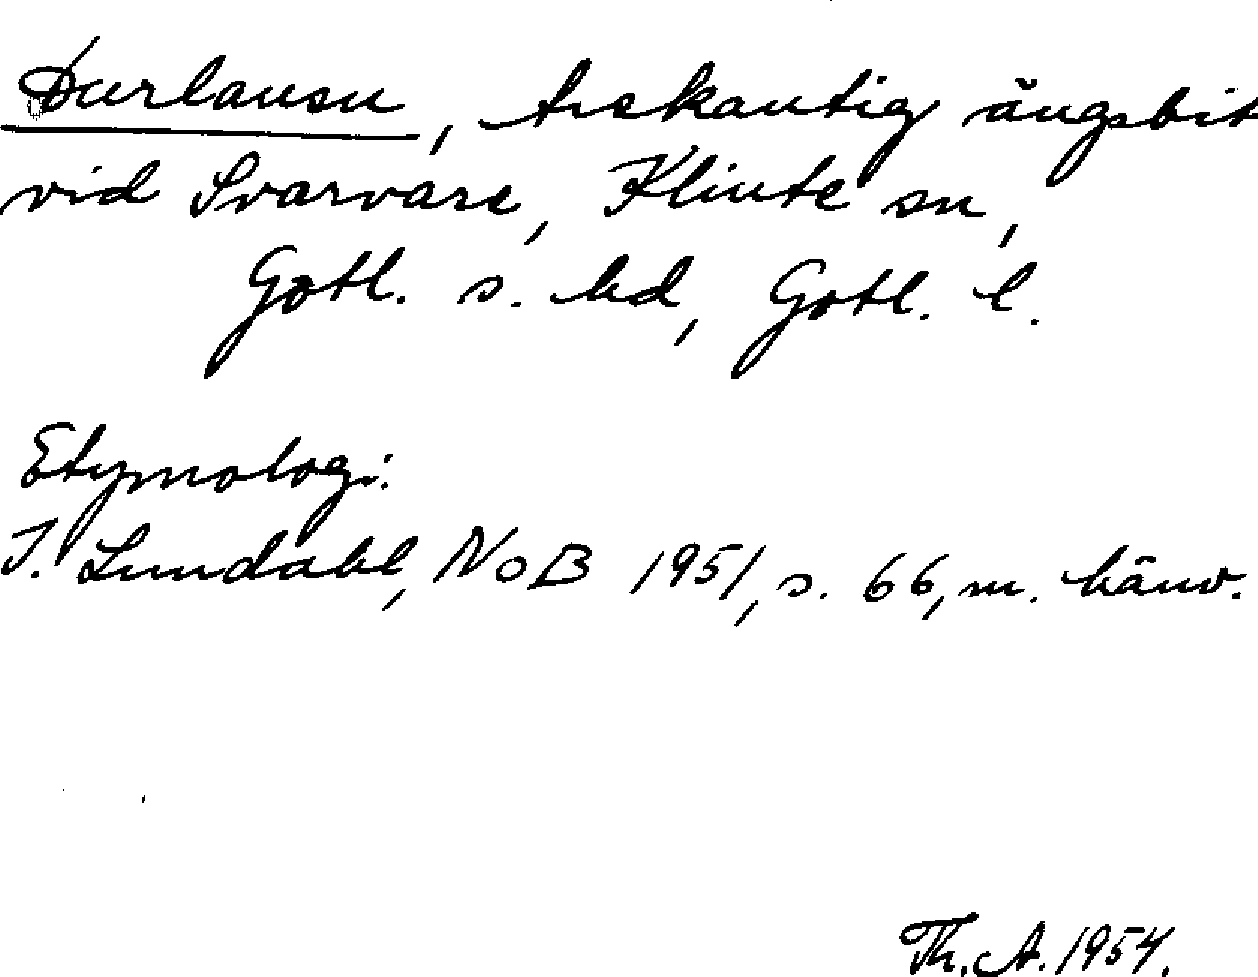 Durlausu, trekantig ängsbit
vid Svarvare, Klinte sn,
Gotl. s. hd, Gotl. l.
Etymologi:
I. Lundahl, NoB 1951, s. 66, m. hänv.
Th. A. 1954.